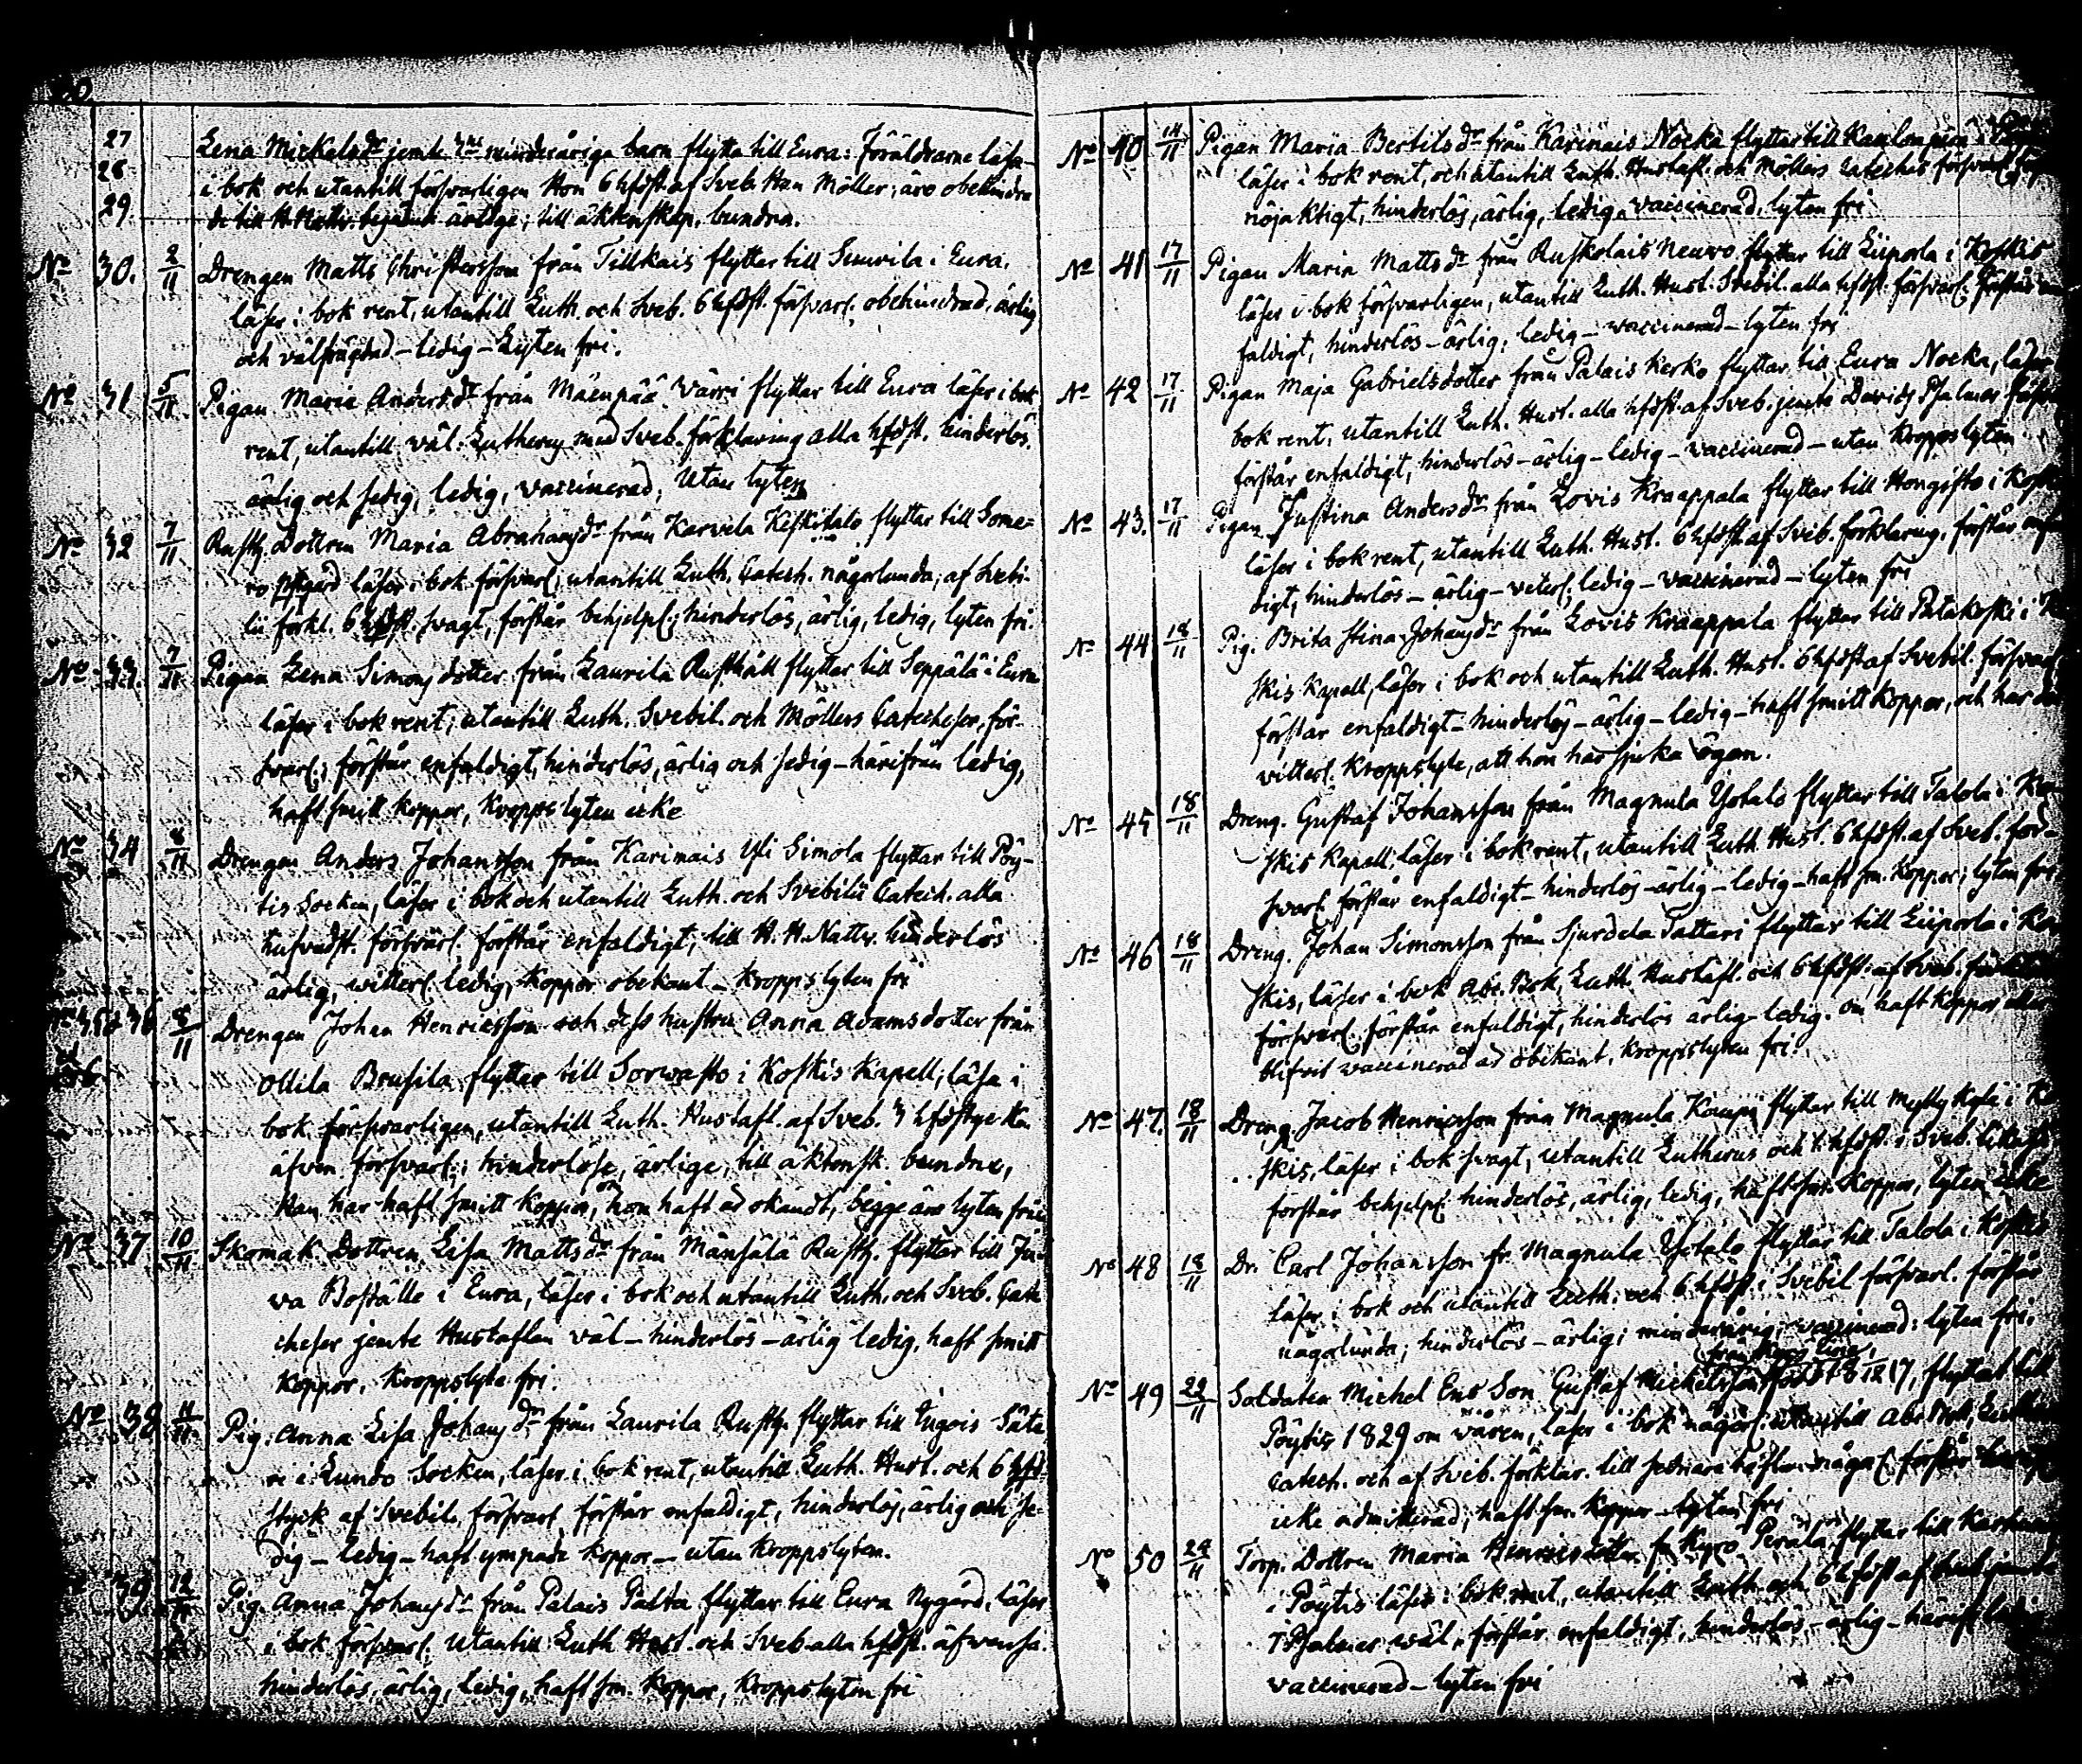 27
28
29.
Lena Mickelsdr jemte 3ne minderåriga barn flytta till Eura: Föräldrarne läsa
i bok och utantill försvarligen Hon 6 hfdst. af Sveb. Han Möller; äro obehindra
de till H. Nattv. begånd. ärlige; till äktenskap. bundna.
No 30. 2/11 Drengen Matts Christersson från Tillkais flyttar till Suurila i Eura.
läser i bok rent, utantill Luth. och Sveb. 6 hfdst. försvarl. obehindrad, ärlig
och välfrägdad – ledig – Lyten fri.
No 31 5/11 Pigan Maria Andersdr från Mäenpää Värri flyttar till Eura läser i bok
rent, utantill väl. Lutherus med Sveb. förklaring alla hfdst. hinderlös.
ärlig och sedig, ledig, vaccinerad, utan lyten
No 32 7/11 Rusth. Dottren Maria Abrahamsdr från Karvela Keskitalo flyttar till Some=
ro läser i bok försvarl. utantill Luth. Catech. någorlunda; af Svebi-
lii förkl. 6 hfdst. svagt, förstår behjelpl.; hinderlös, ärlig, ledig, lyten fri.
No 33. 7/11 Pigan Lena Simonsdotter från Laurila Rusthåll flyttar till Seppälä i Eura
läser i bok rent; utantill Luth. Svebil. och Möllers Catecheser, för-
svarl.; förstår enfaldigt, hinderlös, ärlig och sedig – härifrån ledig,
haft smitt koppor, Kropps lyten icke
No 34 8/11 Drengen Anders Johansson från Karinais Yli Simola flyttar till Pöy-
tis Socken, läser i bok och utantill Luth. och Svebilii Catech. alla
hufvudst. försvarl. förstår enfaldigt; till H. H. Nattv. hinderlös
ärlig, witterl. ledig, koppor obekant – Kropps lyten fri
No 35 & 36 8/11 Drengen Johan Henricsson och dess hustru Anna Adamsdotter från
Ollila Brusila flyttar till Sorwasto i Koskis Kapell; läsa i
bok försvarligen, utantill Luth. Hustafl. af Sveb. 3 hfdst
äfven försvarl.; hinderlöse, ärlige, till äktensk. bundne,
Han har haft smitt koppor, hon haft ad okändt, begge äro lyten frie
No 37 10/11 Skomak. Dottren Lisa Mattsdr från Mänsälä Rusth. flyttar till Ju-
va Boställe i Eura, läser i bok och utantill Luth. och Sveb. Cate
cheser jemte Hustaflan väl – hinderlös – ärlig ledig, haft smitt
koppor, Kroppslyte fri.
No 38 11/11 Pig. Anna Lisa Johansdr från Laurila Rusth. flyttar till Ingois Säte
ri i Lundo Socken, läser i bok rent, utantill Luth. Hust. och 6 hfd-
styck af Svebil. försvarl. förstår enfaldigt, hinderlös, ärlig och se-
dig – ledig – haft ympade koppor – utan Kroppslyten.
39 12/11 Pig. Anna Johansdr från Palais Palta flyttar till Eura Nygård, läser
i bok försvarl. utantill Luth. Hust. och Sveb. alla hfdst. äfwensa.
hinderlös, ärlig, ledig, haft sm. koppor, Kroppslyten fri
No 40 14/11 Pigan Maria Bertilsdr från Karinais Nocka flyttar till
läser i bok rent, och utantill Luth. Hustafl. och Möllers Cateches försvarl.
nöjaktigt, hinderlös, ärlig, ledig, vaccinerad, lyten fri
No 41 17/11 Pigan Maria Mattsdr från Auskolais Neuvo flyttar till Liiporla i Koskis
läser i bok försvarligen, utantill Luth. Hust. Svebil. alla hfdst. försvarl. förstår en
faldigt, hinderlös – ärlig, ledig – vaccinerad – lyten fri
No 42 17/11 Pigan Maja Gabrielsdotter från Palais Kerko flyttar till Eura Nocka, läser
bok rent, utantill Luth. Hust. alla hfdst. af Sveb. jemte Davids Psalmer
förstår enfaldigt, hinderlös – ärlig – ledig – vaccinerad – utan Kroppslyten
No 43. 17/11 Pigan Justina Andersdr från Lovis Kraappala flyttar till Hongisto i
läser i bok rent, utantill Luth. Hust. 6 hfdst. af Sveb. förklaring, förstår enfal
digt, hinderlös – ärlig – veterl. ledig – vaccinerad – lyten fri
No 44 18/11 Pig. Brita Stina Johansdr från Lovis Kraappala flyttar till Patakoski i Ko
skis Kapell, läser i bok och utantill Luth. Hust. 6 hfdst. af Svebil. försvarl.
förstår enfaldigt – hinderlös – ärlig – ledig – haft smitt koppor, och har det
witterl. Kroppslyte, att hon har sjuka ögon.
No 45 18/11 Dreng. Gustaf Johansson från Magnula Yotalo flyttar till Talola i Ko
skis Kapell; läser i bok rent, utantill Luth. Hust. 6 hfdst. af Sveb. för-
svarl. förstår enfaldigt – hinderlös – ärlig – ledig – haft sm. Koppor; lyten fri
No 46 18/11 Dreng. Johan Simonsson från Sjurdela Tattari flyttar till Liiporla i Ko
skis, läser i bok Abc. Bok, Luth. Hustafl. och 6 hfdst. af Sveb.
försvarl. förstår enfaldigt, hinderlös ärlig – ledig. om haft koppor eller
blifvit vaccinerad är obekant. Kroppslyten fri.
No 47. 18/11 Dreng. Jacob Henricsson från Magnula Kaupi flyttar till Myllykylä i Ko
skis, läser i bok svagt, utantill Lutherus och hfdst. i Sveb.
förstår behjelpl. hinderlös, ärlig, ledig, haft sm. Koppor, lyten icke
No 48 18/11 Dr. Carl Johansson fr. Magnula Yotalo flyttar till Talola i Koskis
läser i bok och utantill Luth. och 6 hfdst. i Svebil försvarl. förstår
någorlunda; hinderlös – ärlig; minderårig, vaccinerad: lyten fri.
No 49 22/11 Soldaten Michel Ens Son Gustaf Mickelsson född 18 17, flyttat till
Pöytis 1829 om våren, läser i bok någorl. utantill Abc Bok, Luth
Catech. och af Sveb. förklar. någorl. förstår
icke admitterad; haft sm. koppor – lyten fri
No 50 24/11 Torp. Dottren Maria Henricsdotter fr. Kyrö Perälä flyttar till
i Pöytis läser i bok rent, utantill Luth. och 6 hfdst. af Sveb. jemte
7 Psalmer wäl, förstår enfaldigt, hinderlös – ärlig – härifr. ledig
vaccinerad – lyten fri